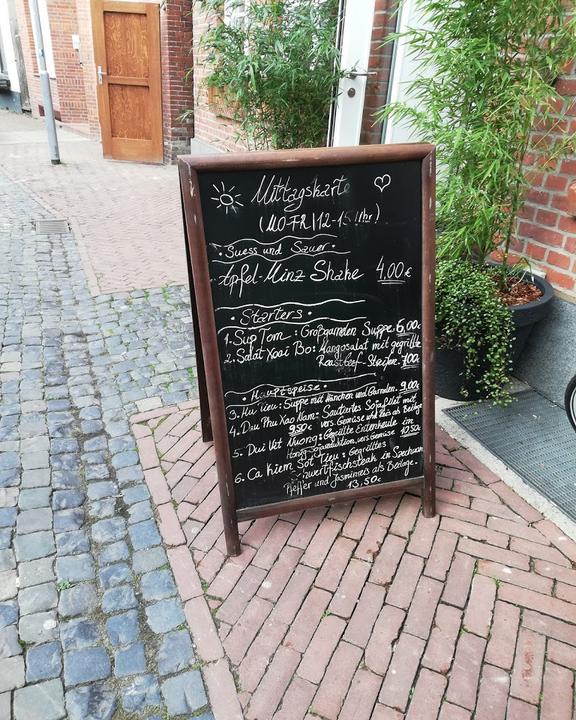 Mittagskarte
(MO-FR | 12-15 Uhr)
• Suess und Sauer •
Apfel-Minz Shake 4.00€
• Starters •
1. Sup Tom : Großgarnelen Suppe 6,00€
2. Salat Xoai Bo: Mangosalat mit gegrillte
Roastbeef-Streifen. 7.00
• Hauptspeise •
3. Hu Tieu: Suppe mit Hünchen und Garnelen. 9,00€
4. Dau Phu Xao Nam: Sautiertes Sojafilet mit
9,50€ vers Gemüse und Reis als Beilage
5. Dui Vit Nuong: Gegrillte Entenkeule in
Honig-Sojareduktion, vers Gemüse 10.50
6. Ca Kiem Sot Tieu: Gegrilltes
Schwertfischsteak in Szechuan
Pfeffer und Jasminreis als Beilage.
13,50€